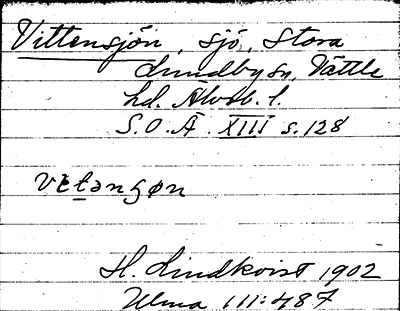 Vittensjön, sjö, Stora
Lundby sn, Vättle
hd. Älvsb. l.
S.O.Ä. XIII s. 128
vetənʂøn
H. Lindkvist 1902
Ulma 111:487